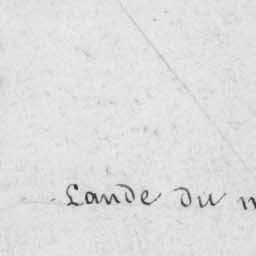 Lande du